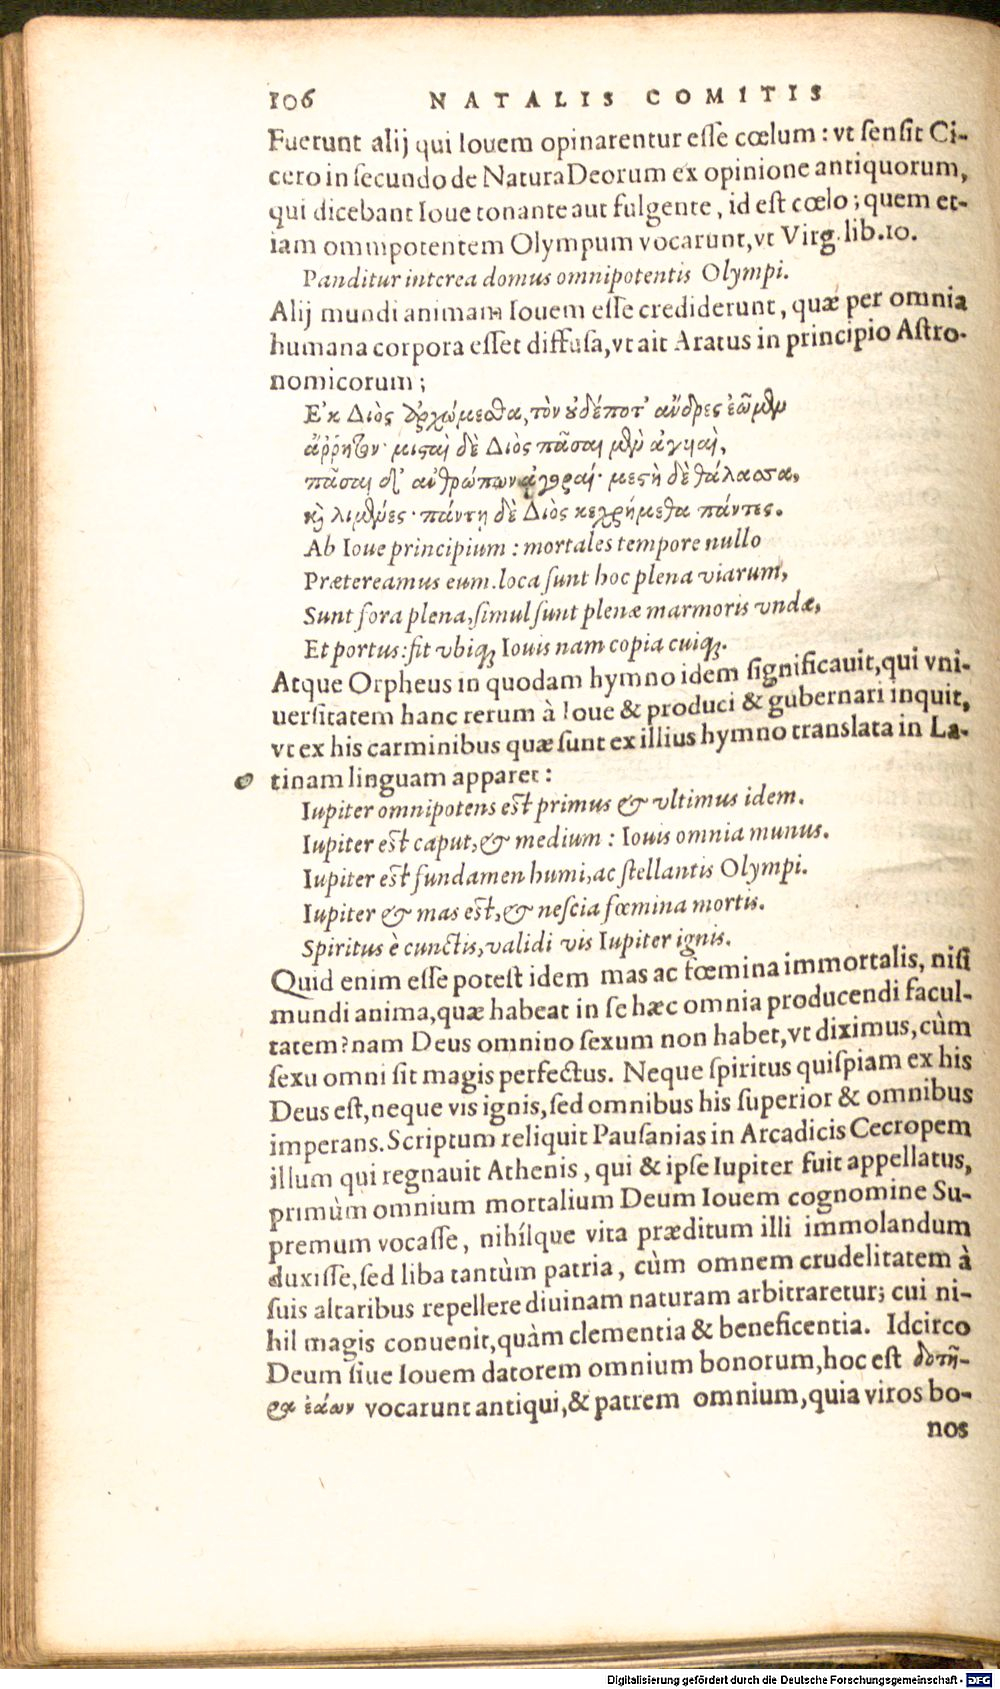 106 NATALIS COMITIS
Fuerunt alij qui Iouem opinarentur esse cœlum: vt sensit Ci-
cero in secundo de Natura Deorum ex opinione antiquorum,
qui dicebant Ioue tonante aut fulgente, id est cœlo; quem et-
iam omnipotentem Olympum vocarunt, vt Virg. lib. 10.
Panditur interea domus omnipotentis Olympi.
Alij mundi animam Iouem esse crediderunt, quæ per omnia
humana corpora esset diffusa, vt ait Aratus in principio Astro-
nomicorum;
Ἐκ Διὸς ἀρχώμεσθα, τὸν οὐδέποτ' ἄνδρες ἐῶμεν
ἄῤῥητον· μεσταὶ δὲ Διὸς πᾶσαι μὲν ἀγυιαὶ,
πᾶσαι δ' ἀνθρώπων ἀγοραί· μεστὴ δὲ θάλασσα,
καὶ λιμένες· πάντη δὲ Διὸς κεχρήμεθα πάντες.
Ab Ioue principium: mortales tempore nullo
Prætereamus eum. loca sunt hoc plena viarum,
Sunt fora plena, simul sunt plenæ marmoris vndæ,
Et portus: fit vbiq; Iouis nam copia cuiq;.
Atque Orpheus in quodam hymno idem significauit, qui vni-
uersitatem hanc rerum à Ioue & produci & gubernari inquit,
vt ex his carminibus quæ sunt ex illius hymno translata in La-
tinam linguam apparet:
Iupiter omnipotens est primus & vltimus idem.
Iupiter est caput, & medium: Iouis omnia munus.
Iupiter est fundamen humi, ac stellantis Olympi.
Iupiter & mas est, & nescia fœmina mortis.
Spiritus è cunctis, validi vis Iupiter ignis.
Quid enim esse potest idem mas ac fœmina immortalis, nisi
mundi anima, quæ habeat in se hæc omnia producendi facul-
tatem? nam Deus omnino sexum non habet, vt diximus, cùm
sexu omni sit magis perfectus. Neque spiritus quispiam ex his
Deus est, neque vis ignis, sed omnibus his superior & omnibus
imperans. Scriptum reliquit Pausanias in Arcadicis Cecropem
illum qui regnauit Athenis, qui & ipse Iupiter fuit appellatus,
primùm omnium mortalium Deum Iouem cognomine Su-
premum vocasse, nihílque vita præditum illi immolandum
duxisse, sed liba tantùm patria, cùm omnem crudelitatem à
suis altaribus repellere diuinam naturam arbitraretur; cui ni-
hil magis conuenit, quàm clementia & beneficentia. Idcirco
Deum siue Iouem datorem omnium bonorum, hoc est δοτῆ-
ρα ἐάων vocarunt antiqui, & patrem omnium, quia viros bo-
nos
Digitalisierung gefördert durch die Deutsche Forschungsgemeinschaft - DFG